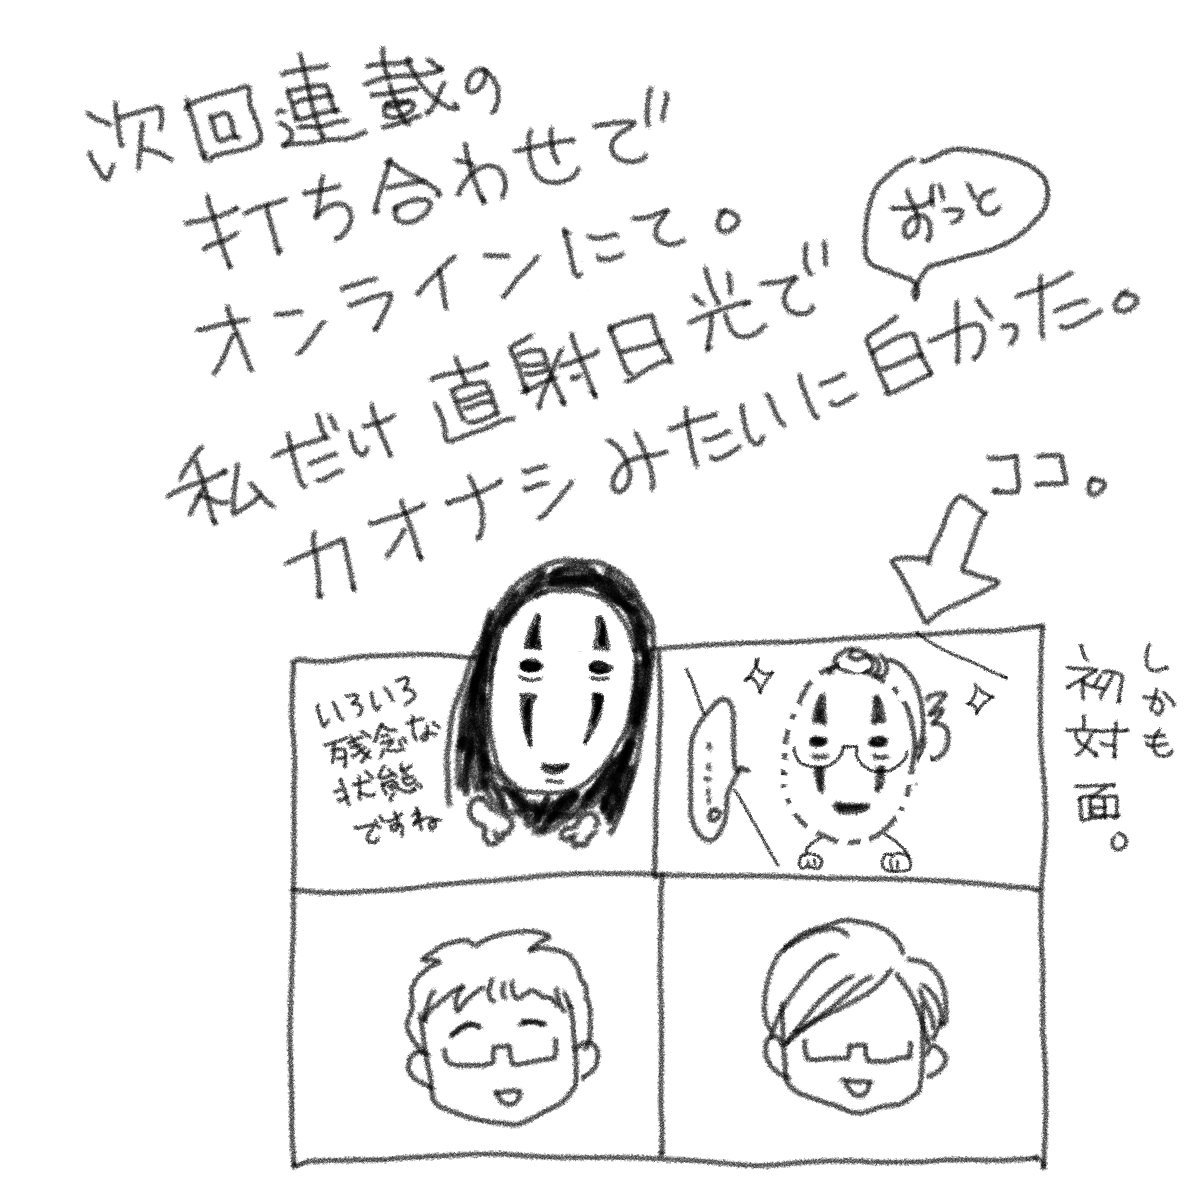 次回連載の
打ち合わせで
オンラインにて。
私だけ直射日光で
ずっと
カオナシみたいに白かった。
ココ。
しかも
初対面。
いろいろ
残念な
状態
ですね
……。